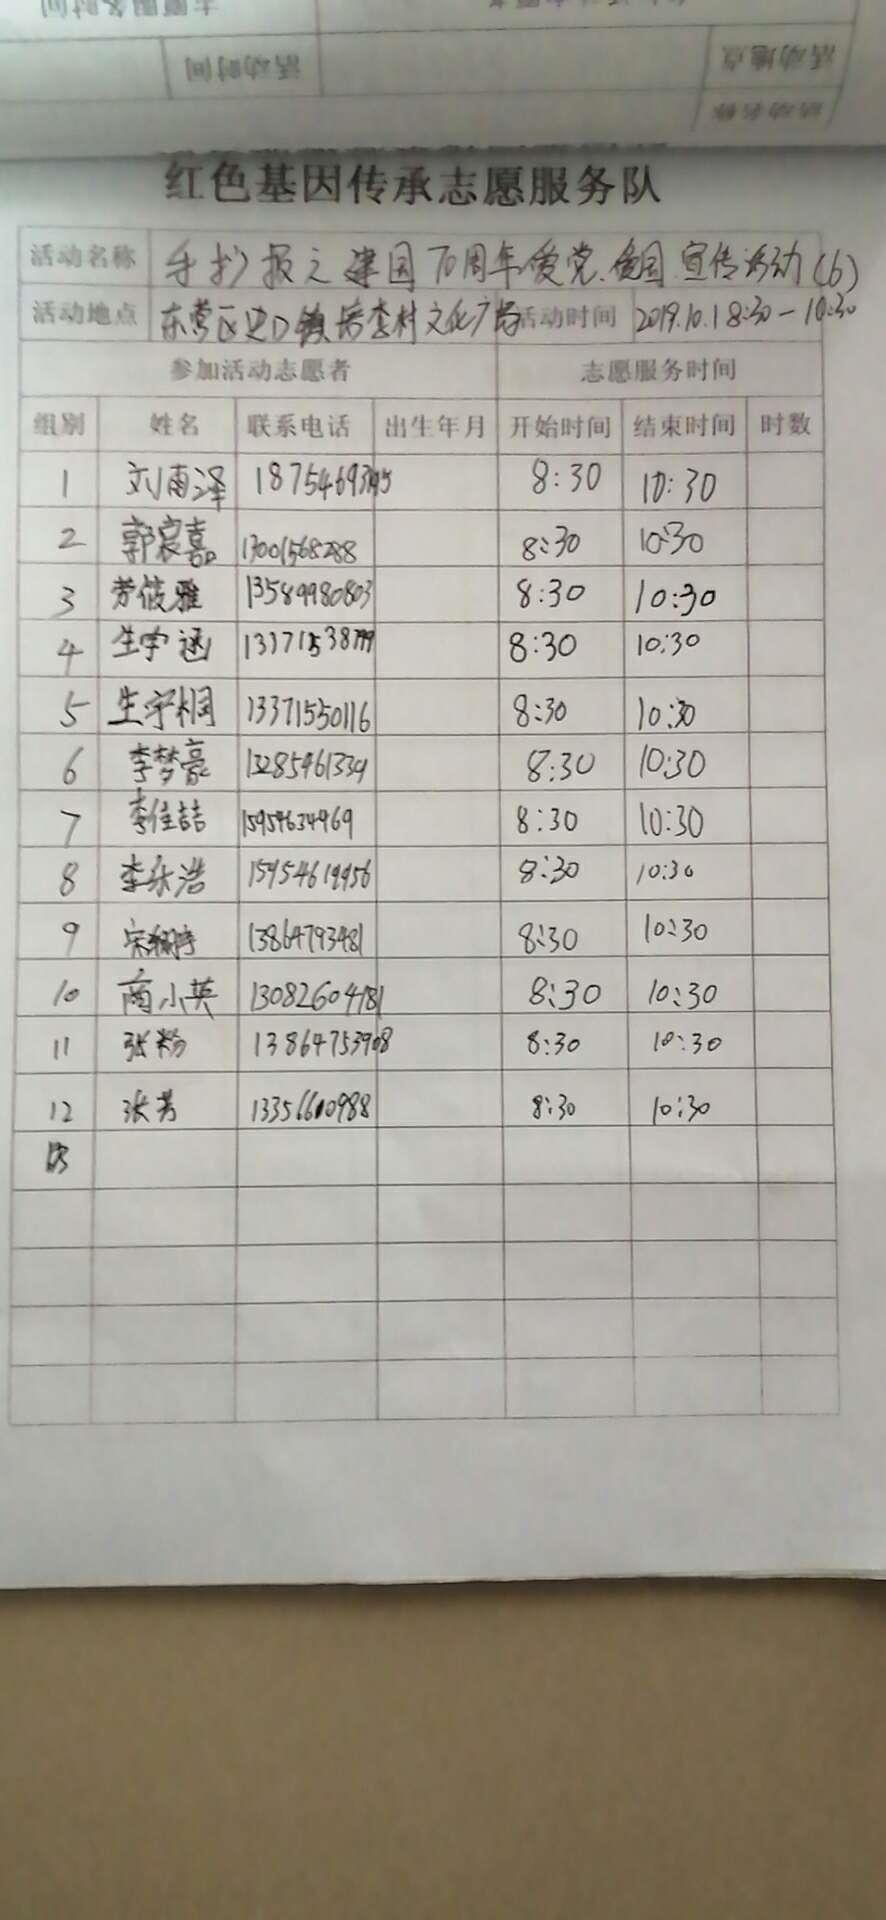 活动地点
活动时间
活动名称
红色基因传承志愿服务队
活动名称 手抄报之建国70周年爱党、爱国宣传活动(6)
活动地点 东营区史口镇 李村文化广场 活动时间 2019.10.1 8:30-10:30
参加活动志愿者 志愿服务时间
组别 姓名 联系电话 出生年月 开始时间 结束时间 时数
1 刘雨泽 8:30 10:30
2 郭宸嘉 13001568288 8:30 10:30
3 劳筱雅 13589980803 8:30 10:30
4 生宇涵 8:30 10:30
5 生宇桐 13371550116 8:30 10:30
6 李梦豪 13285461334 8:30 10:30
7 李佳喆 15954634969 8:30 10:30
8 李乐浩 8:30 10:30
9 13864793481 8:30 10:30
10 商小英 13082604181 8:30 10:30
11 张粉 13864753908 8:30 10:30
12 张芳 13356610988 8:30 10:30
13